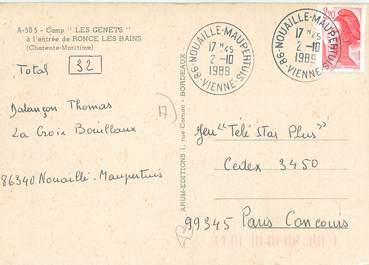 A-505 - Camp " LES GENETS "
à l'entrée de RONCE LES BAINS
(Charente-Maritime)
Total 32
Dalançon Thomas
La Croix Bouillaux
86340 Nouaillé-Maupertuis
17
ARUM-EDITIONS 1, rue Cornac - BORDEAUX
NOUAILLE-MAUPERTUIS
17H45
2-10
1989
86-VIENNE
NOUAILLE-MAUPERTUIS
17H45
2-10
1989
86-VIENNE
Jeu "Télé Star Plus"
Cedex 3450
99345 Paris Concours